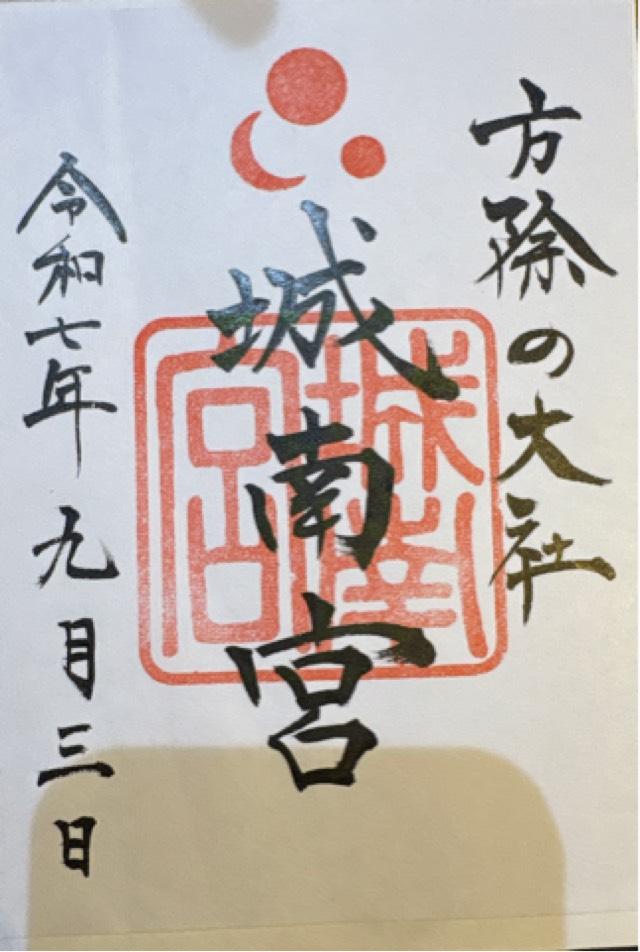 方除の大社
城南宮
城南宮
令和七年九月三日